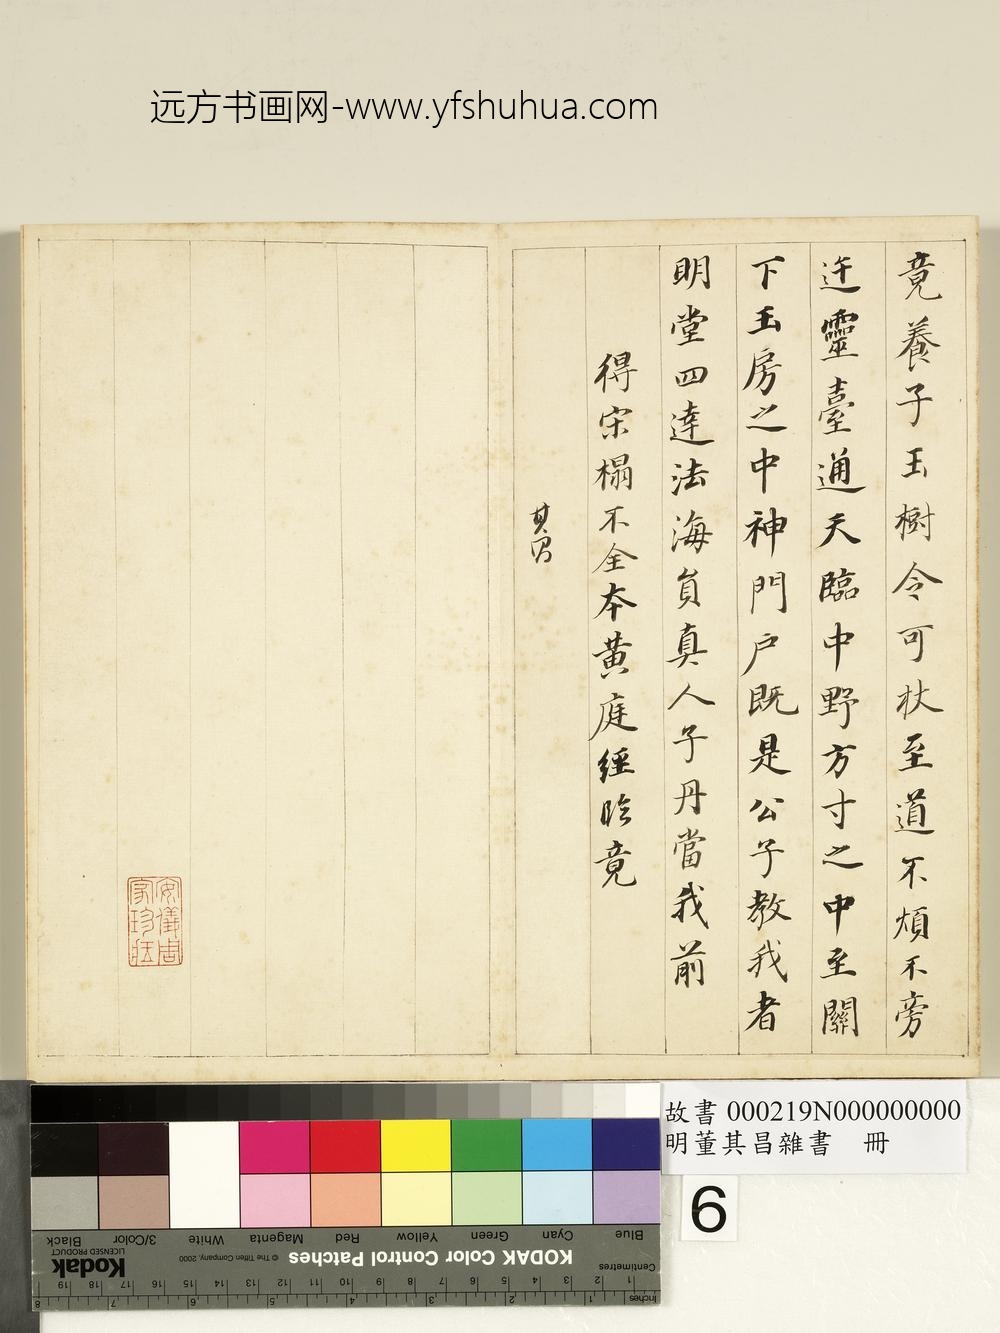 远方书画网-www.yfshuhua.com
竟養子玉樹令可杖至道不煩不旁
迕靈臺通天臨中野方寸之中至關
下玉房之中神門戶既是公子教我者
明堂四達法海負真人子丹當我前
得宋榻不全本黃庭經臨竟
其昌
安儀周家珍藏
故書 000219N000000000
明董其昌雜書 冊
6
Blue Cyan Green Yellow Red Magenta White 3/Color Black
KODAK Color Control Patches
© The Tiffen Company, 2000
Kodak
LICENSED PRODUCT
Centimetres
1 2 3 4 5 6 7 8 9 10 11 12 13 14 15 16 17 18 19
Inches
1 2 3 4 5 6 7 8